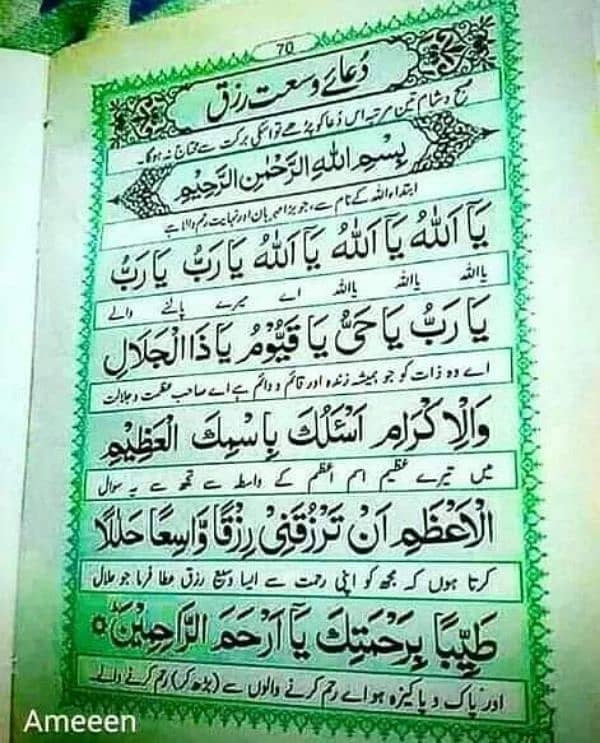 70
دُعائے وسعت رزق
صبح و شام تین مرتبہ اس دُعا کو پڑھے تو اسکی برکت سے محتاج نہ ہوگا۔
بِسْمِ اللهِ الرَّحْمٰنِ الرَّحِيْمِ
ابتداء اللہ کے نام سے، جو بڑا مہربان اور نہایت رحم والا ہے
يَآ اَللهُ يَآ اَللهُ يَآ اَللهُ يَا رَبُّ يَا رَبُّ
یااللہ یااللہ یااللہ اے میرے پالنے والے
يَا رَبُّ يَا حَىُّ يَا قَيُّوْمُ يَا ذَا الْجَلَالِ
اے وہ ذات کو جو ہمیشہ زندہ اور قائم و دائم ہے اے صاحب عظمت و جلالت
وَالْاِكْرَامِ اَسْئَلُكَ بِاسْمِكَ الْعَظِيْمِ
میں تیرے عظیم اسم اعظم کے واسطہ سے تجھ سے یہ سوال
الْاَعْظَمِ اَنْ تَرْزُقَنِىْ رِزْقًا وَّاسِعًا حَلٰلًا
کرتا ہوں کہ مجھ کو اپنی رحمت سے ایسا وسیع رزق عطا فرما جو حلال
طَيِّبًا بِرَحْمَتِكَ يَآ اَرْحَمَ الرَّاحِمِيْنَ
اور پاک و پاکیزہ ہو اے رحم کرنے والوں سے (بڑھ کر) رحم کرنے والے۔
Ameeen